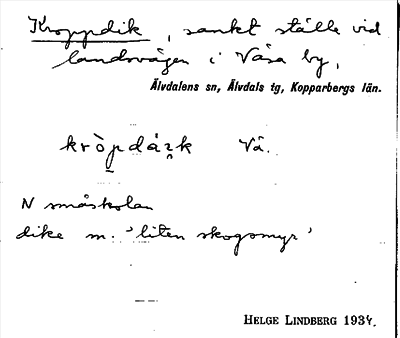 Kroppdik, sankt ställe vid
landsvägen i Våsa by,
Älvdalens sn, Älvdals tg, Kopparbergs län.
kròp̠dáɪ̯k Vå.
N småskolan
dike m. 'liten skogsmyr'
HELGE LINDBERG 1934.